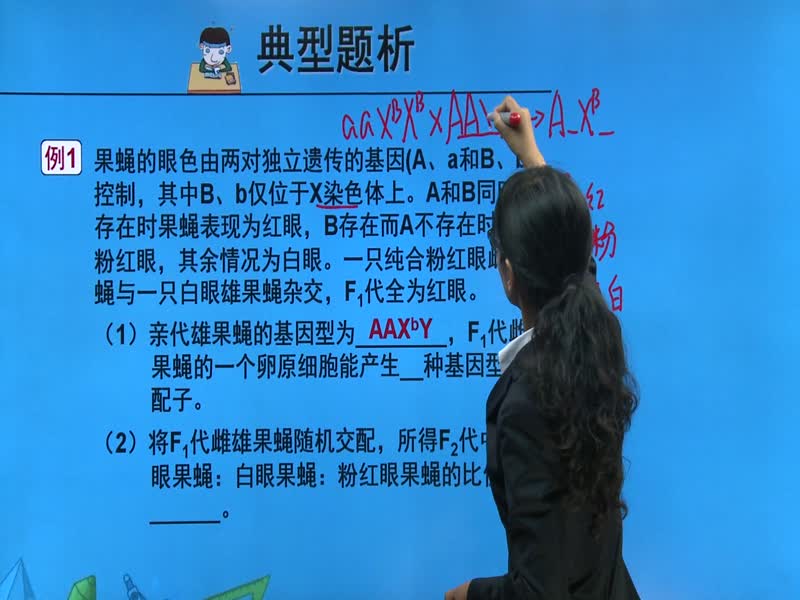 典型题析
aaXᴮXᴮ×AAX → A_Xᴮ_
例1 果蝇的眼色由两对独立遗传的基因(A、a和B、
控制，其中B、b仅位于X染色体上。A和B同
红
存在时果蝇表现为红眼，B存在而A不存在时
粉
粉红眼，其余情况为白眼。一只纯合粉红眼
蝇与一只白眼雄果蝇杂交，F₁代全为红眼。
白
（1）亲代雄果蝇的基因型为 AAXᵇY ，F₁代雌
果蝇的一个卵原细胞能产生__种基因型
配子。
（2）将F₁代雌雄果蝇随机交配，所得F₂代
眼果蝇：白眼果蝇：粉红眼果蝇的比
______。